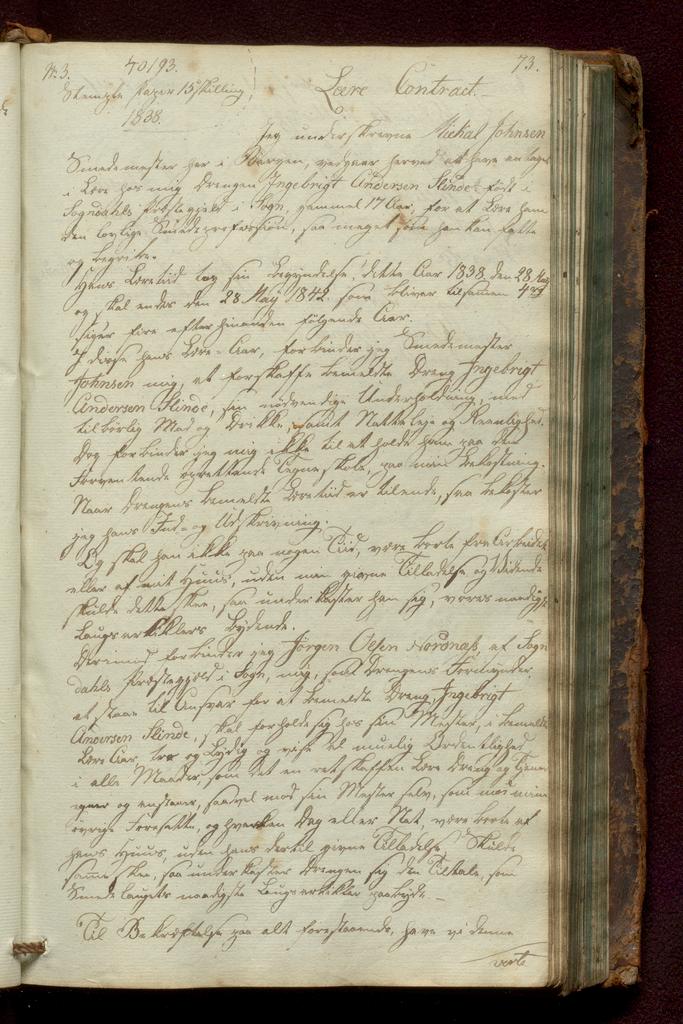 No 3. 40/93. 73.
Stemplet Papir 15 skilling
1838.
Lære Contract.
Jeg underskrevne Michal Johnsen
Smedemester her i Bergen, vedgaar herved at have antaget
i Lære hos mig Drengen Ingebrigt Andersen Slinde, født i
Sogndahls Præstegjeld i Sogn, gammel 17 Aar, for at lære ham
den lovlige Smedeprofession, saa meget som han kan fatte
og begribe.
Hans Læretiid tog sin Begyndelse dette Aar 1838 den 28 May
og skal endes den 28 May 1842. som bliver tilsammen 4re
siger fire efter hinanden følgende Aar.
I disse hans Lære-Aar, forbinder jeg Smedemester
Johnsen mig, at forskaffe bemeldte Dreng Ingebrigt
Andersen Slinde, sin nødvendige Underholdning, med
tilbørlig Mad og Drikke, samt Natteleje og Reenlighed.
Dog forbinder jeg mig ikke til at holde ham paa den
forventende oprettende Tegneskole, paa min Bekostning.
Naar Drengens bemeldte Læretiid er tilende, saa bekoster
jeg hans Ind- og Udskrivning.
Ej skal han ikke paa nogen Tiid, være borte fra Arbeidet
eller af mit Huus, uden min givne Tilladelse og Vidende
skulde dette skee, saa underkaster han sig, vores naadigste
Laugsartiklers Lydende.
Derimod forbinder jeg Jørgen Olsen Nordnæs, af Sogn
dahls Præstegjeld i Sogn, mig, som Drengens Formynder
at staae til Ansvar for at bemeldte Dreng Ingebrigt
Andersen Slinde, skal forholde sig hos sin Mester, i bemeldte
Lære Aar, troe og Lydig og vise al muelig Ordentlighed
i alle Maader, som det en retskaffen Lære Dreng og Tjener
egner og anstaaer, saavel mod sin Mester selv, som mod
øvrige Foresatte, og hverken Dag eller Nat, være borte af
hans Huus, uden hans dertil givne Tilladelse. Skulde
saame skee, saa underkaster Drengen sig den Tiltale, som
Smedelaugets naadigste Laugsartikler paabyde. –
Til Bekræftelse paa alt forestaaende, have vi denne
verte